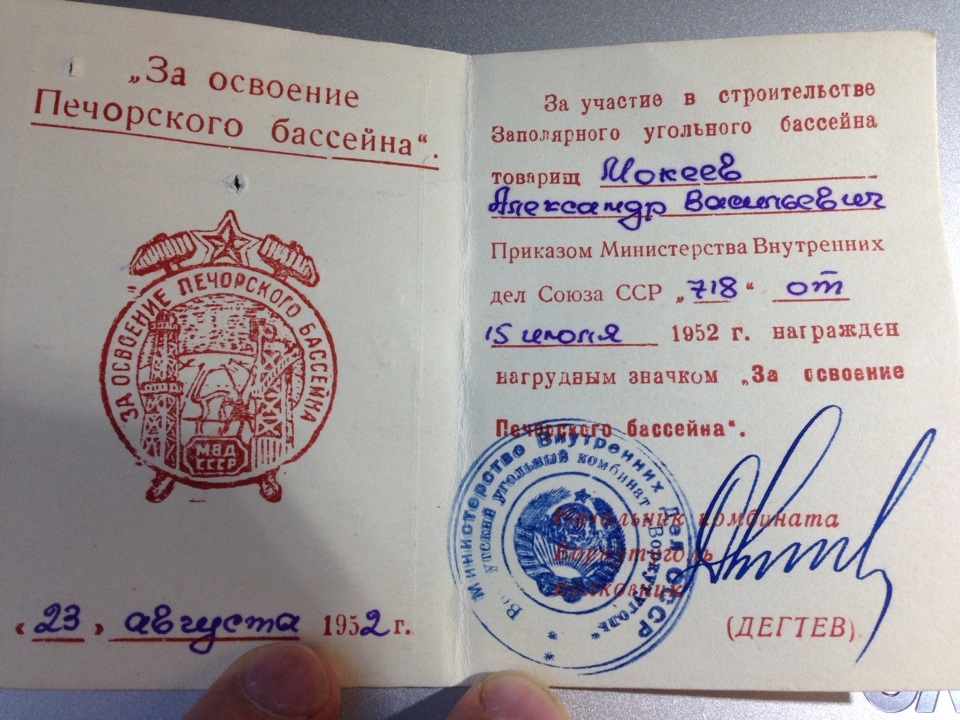 „За освоение
Печорского бассейна“.
ЗА ОСВОЕНИЕ ПЕЧОРСКОГО БАССЕЙНА
МВД
СССР
„23„ августа 1952 г.
За участие в строительстве
Заполярного угольного бассейна
товарищ Мокеев
Александр Васильевич
Приказом Министерства Внутренних
дел Союза ССР „718“ от
15 июля 1952 г. награжден
нагрудным значком „За освоение
Печорского бассейна“.
Начальник комбината
Воркутуголь
полковник
(ДЕГТЕВ).
Министерство Внутренних Дел СССР
Воркутский угольный комбинат
„Воркутуголь“